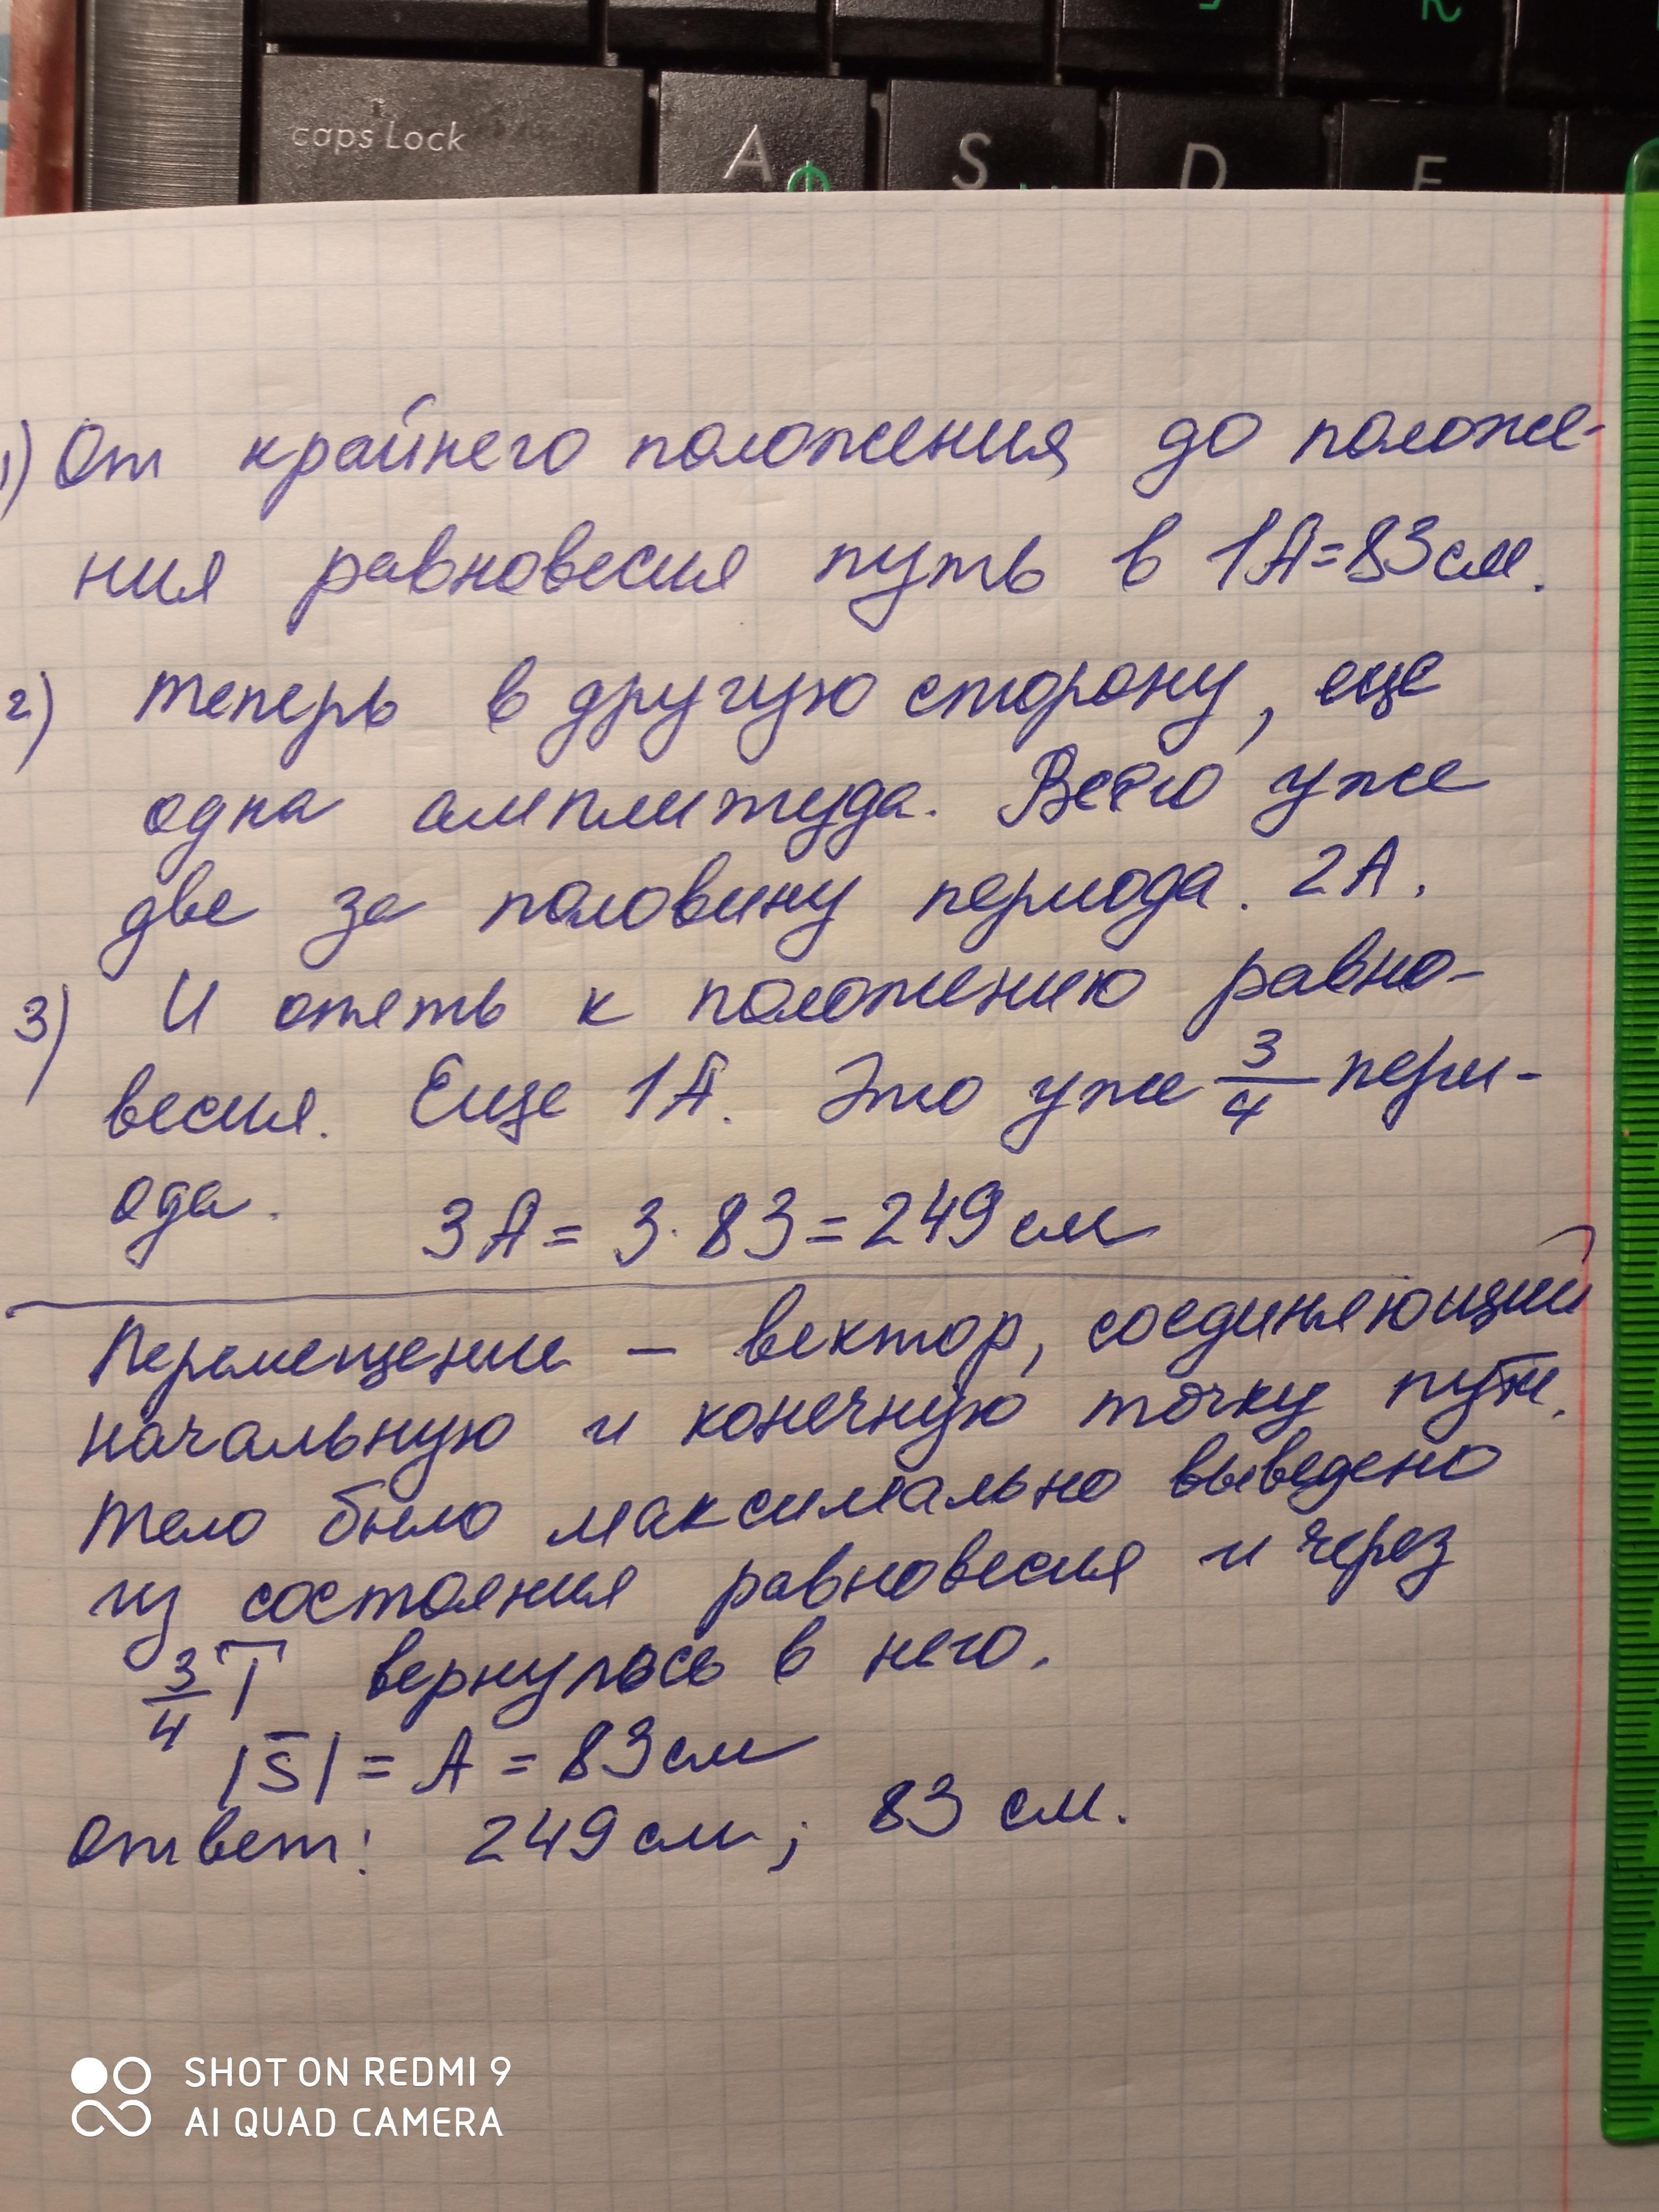 caps Lock
A Ф S D F
1) От крайнего положения до положе-
ния равновесия путь в 1A=83см.
2) теперь в другую сторону, еще
одна амплитуда. Всего уже
две за половину периода. 2A.
3) И опять к положению равно-
весия. Еще 1A. Это уже 3/4 пери-
ода. 3A = 3·83=249см
Перемещение – вектор, соединяющий
начальную и конечную точку пути.
Тело было максимально выведено
из состояния равновесия и через
3/4 T вернулось в него.
|s̅| = A = 83см
Ответ: 249см; 83 см.
SHOT ON REDMI 9
AI QUAD CAMERA